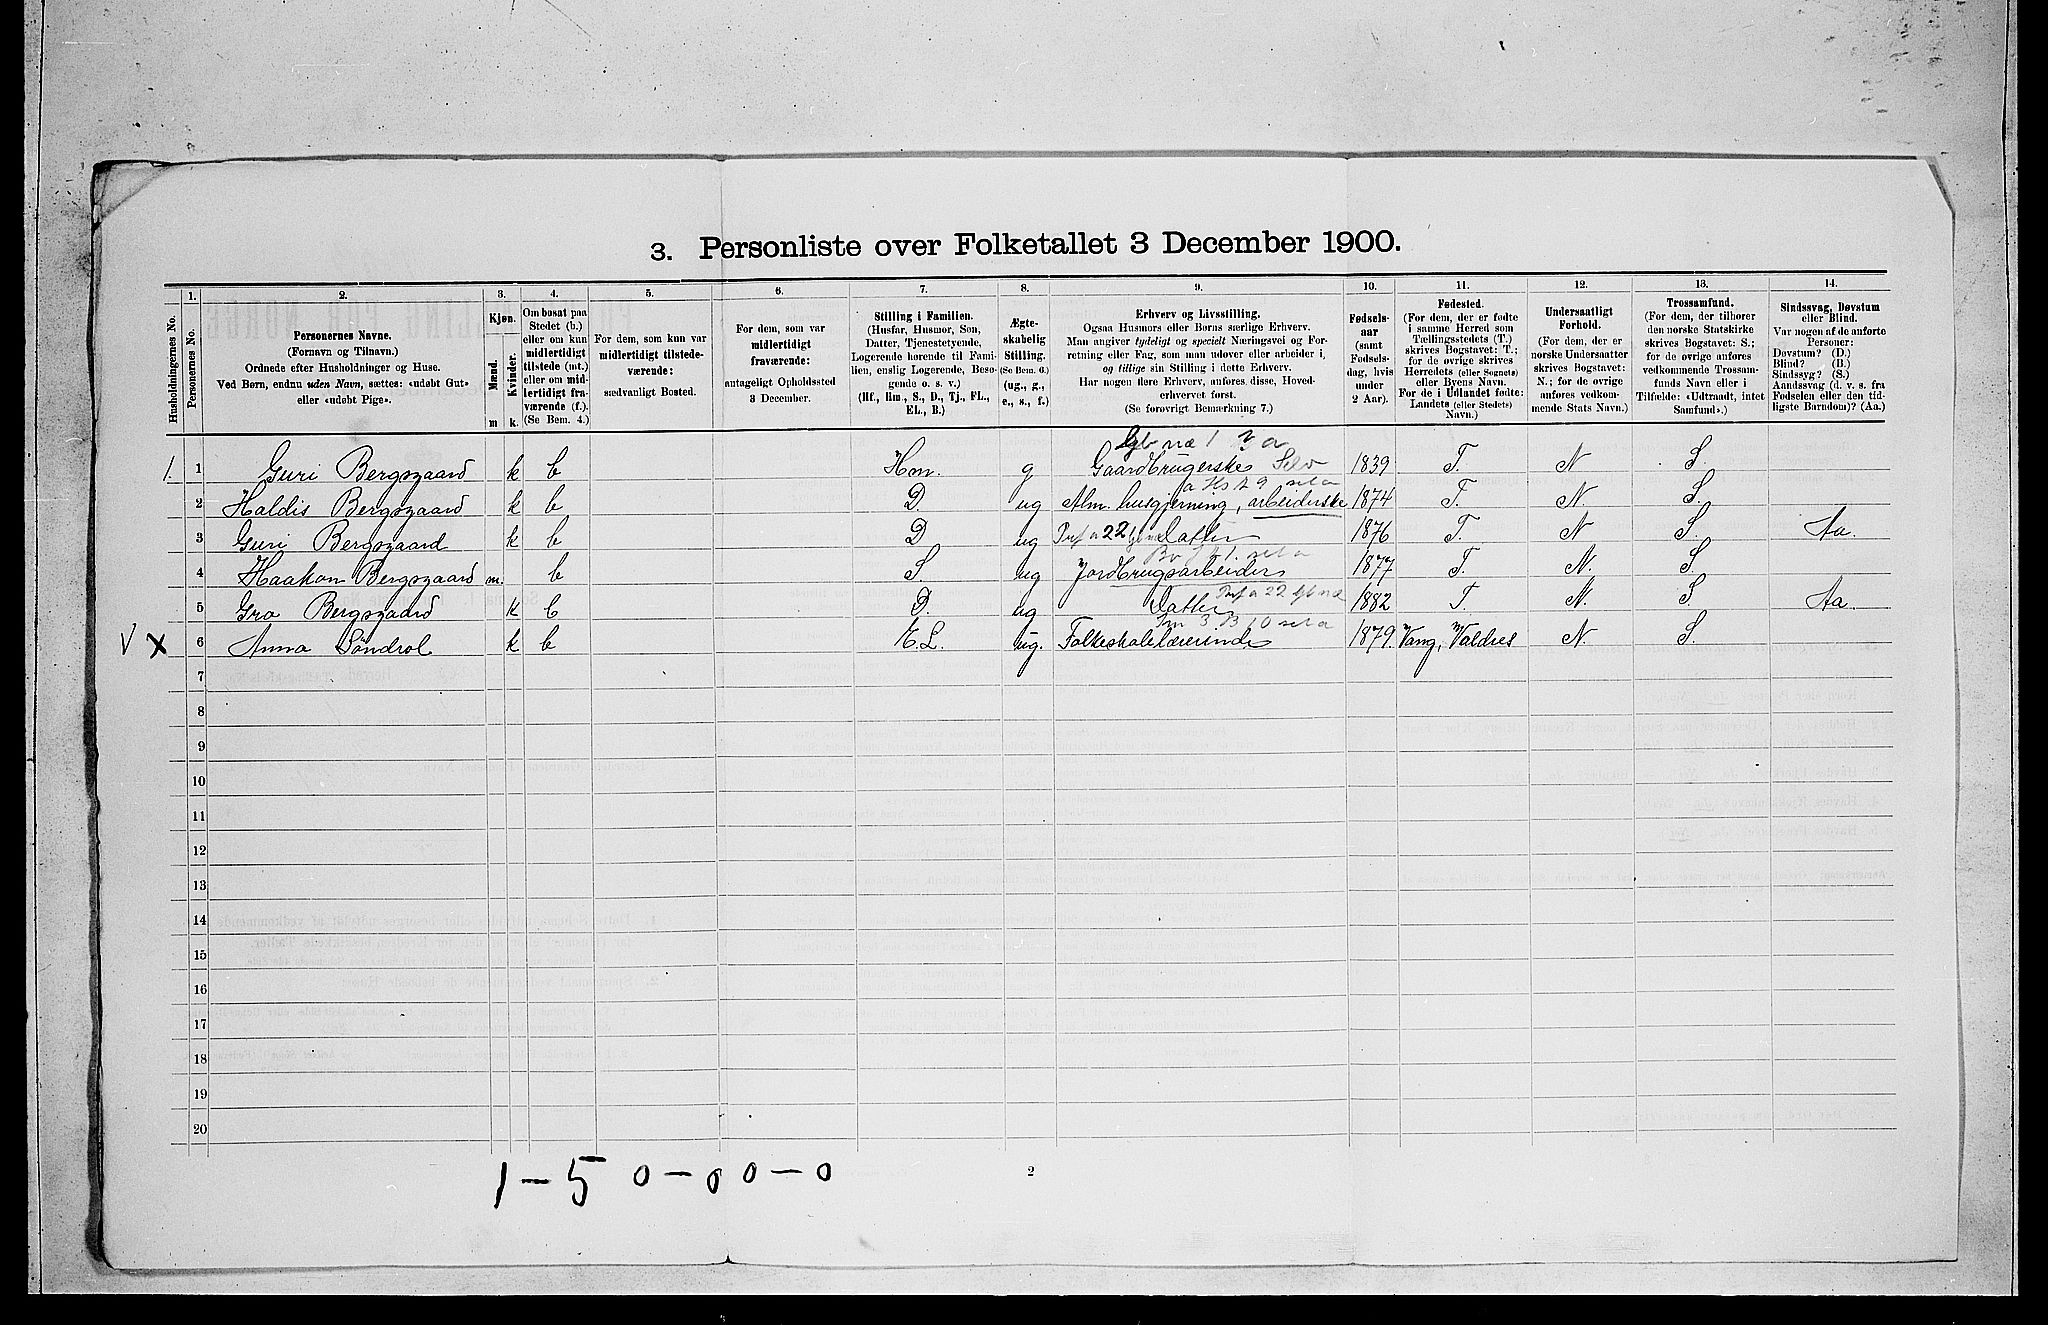 3. Personliste over Folketallet 3 December 1900.
Husholdningernes No.
1.
Personernes No.
2.
Personernes Navne.
(Fornavn og Tilnavn.)
Ordnede efter Husholdninger og Huse.
Ved Børn, endnu uden Navn, sættes: «udøbt Gut»
eller «udøbt Pige».
3.
Kjøn.
Mænd.
Kvinder.
m
k.
4.
Om bosat paa
Stedet (b.)
eller om kun
midlertidigt
tilstede (mt.)
eller om mid-
lertidigt fra-
værende (f.).
(Se Bem. 4.)
5.
For dem, som kun var
midlertidigt tilstede-
værende:
sædvanligt Bosted.
6.
For dem, som var
midlertidigt
fraværende:
antageligt Opholdssted
3 December.
7.
Stilling i Familien.
(Husfar, Husmor, Søn,
Datter, Tjenestetyende,
Logerende hørende til Fami-
lien, enslig Logerende, Besø-
gende o. s. v.)
(Hf., Hm., S., D., Tj., FL.,
EL., B.)
8.
Ægte-
skabelig
Stilling.
(Se Bem. 6.)
(ug., g.,
e., s., f.)
9.
Erhverv og Livsstilling.
Ogsaa Husmors eller Børns særlige Erhverv.
Man angiver tydeligt og specielt Næringsvei og For-
retning eller Fag, som man udover eller arbeider i,
og tillige sin Stilling i dette Erhverv.
Har nogen flere Erhverv, anføres disse, Hoved-
erhvervet først.
(Se forøvrigt Bemærkning 7.)
10.
Fødsels-
aar
(samt
Fødsels-
dag, hvis
under
2 Aar).
11.
Fødested.
(For dem, der er fødte
i samme Herred som
Tællingsstedets (T.)
skrives Bogstavet: T.;
for de øvrige skrives
Herredets (eller Sognets)
eller Byens Navn.
For de i Udlandet fødte:
Landets (eller Stedets)
Navn.)
12.
Undersaatligt
Forhold.
(For dem, der er
norske Undersaatter
skrives Bogstavet:
N.; for de øvrige
anføres vedkom-
mende Stats Navn.)
13.
Trossamfund.
(For dem, der tilhører
den norske Statskirke
skrives Bogstavet: S.;
for de øvrige anføres
vedkommende Trossam-
funds Navn eller i
Tilfælde: «Udtraadt, intet
Samfund».)
14.
Sindssvag, Døvstum
eller Blind.
Var nogen af de anførte
Personer:
Døvstum? (D.)
Blind? (B.)
Sindssyg? (S.)
Aandssvag (d. v. s. fra
Fødselen eller den tid-
ligste Barndom)? (Aa.)
1. 1 Guri Bergsgaard k b Hm. g Gaardbrugerske Selv 1839 T. N S.
2 Haldis Bergsgaard k b D. ug Alm. husgjerning, arbeiderske 1874 T. N. S.
3 Guri Bergsgaard k b D ug Datter 1876 T. N S. Aa.
4 Haakon Bergsgaard m. b S. ug Jordbrugsarbeider 1877 T. N. S.
5 Gro Bergsgaard k b D. ug Datter 1882 T. N. S. Aa.
V x 6 Anna Söndrol k b E.L. ug. Folkeskolelærerinde 1879. Vang, Valdres N. S.
7
8
9
10
11
12
13
14
15
16
17
18
19
20
1 - 5 0 - 0 0 - 0
2